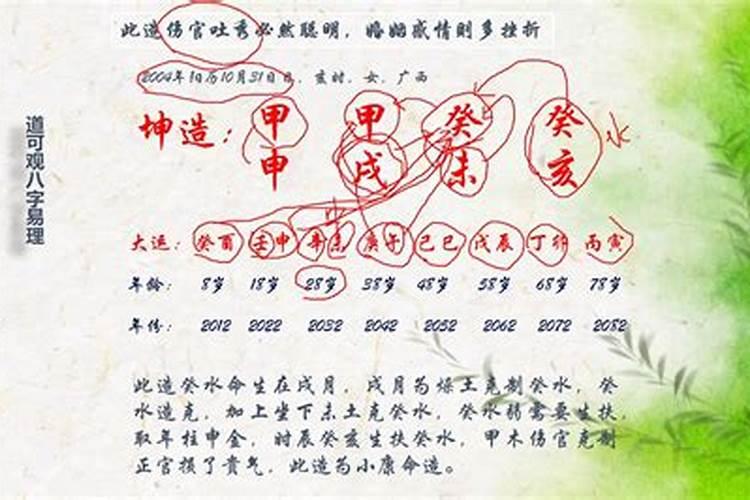 此造伤官吐秀必然聪明，婚姻感情则多挫折
2004年阳历10月31日，亥时，女，广西
坤造：甲 甲 癸 癸 水
申 戌 未 亥
道可观八字易理
大运：癸酉 壬申 辛未 庚午 己巳 戊辰 丁卯 丙寅
年龄：8岁 18岁 28岁 38岁 48岁 58岁 68岁 78岁
年份：2012 2022 2032 2042 2052 2062 2072 2082
此造癸水命生在戌月，戌月为燥土克制癸水，癸
水逢克，加上坐下未土克癸水，癸水弱需要生扶，
取年柱申金，时辰癸亥生扶癸水，甲木伤官克制
正官损了贵气，此造为小康命造。